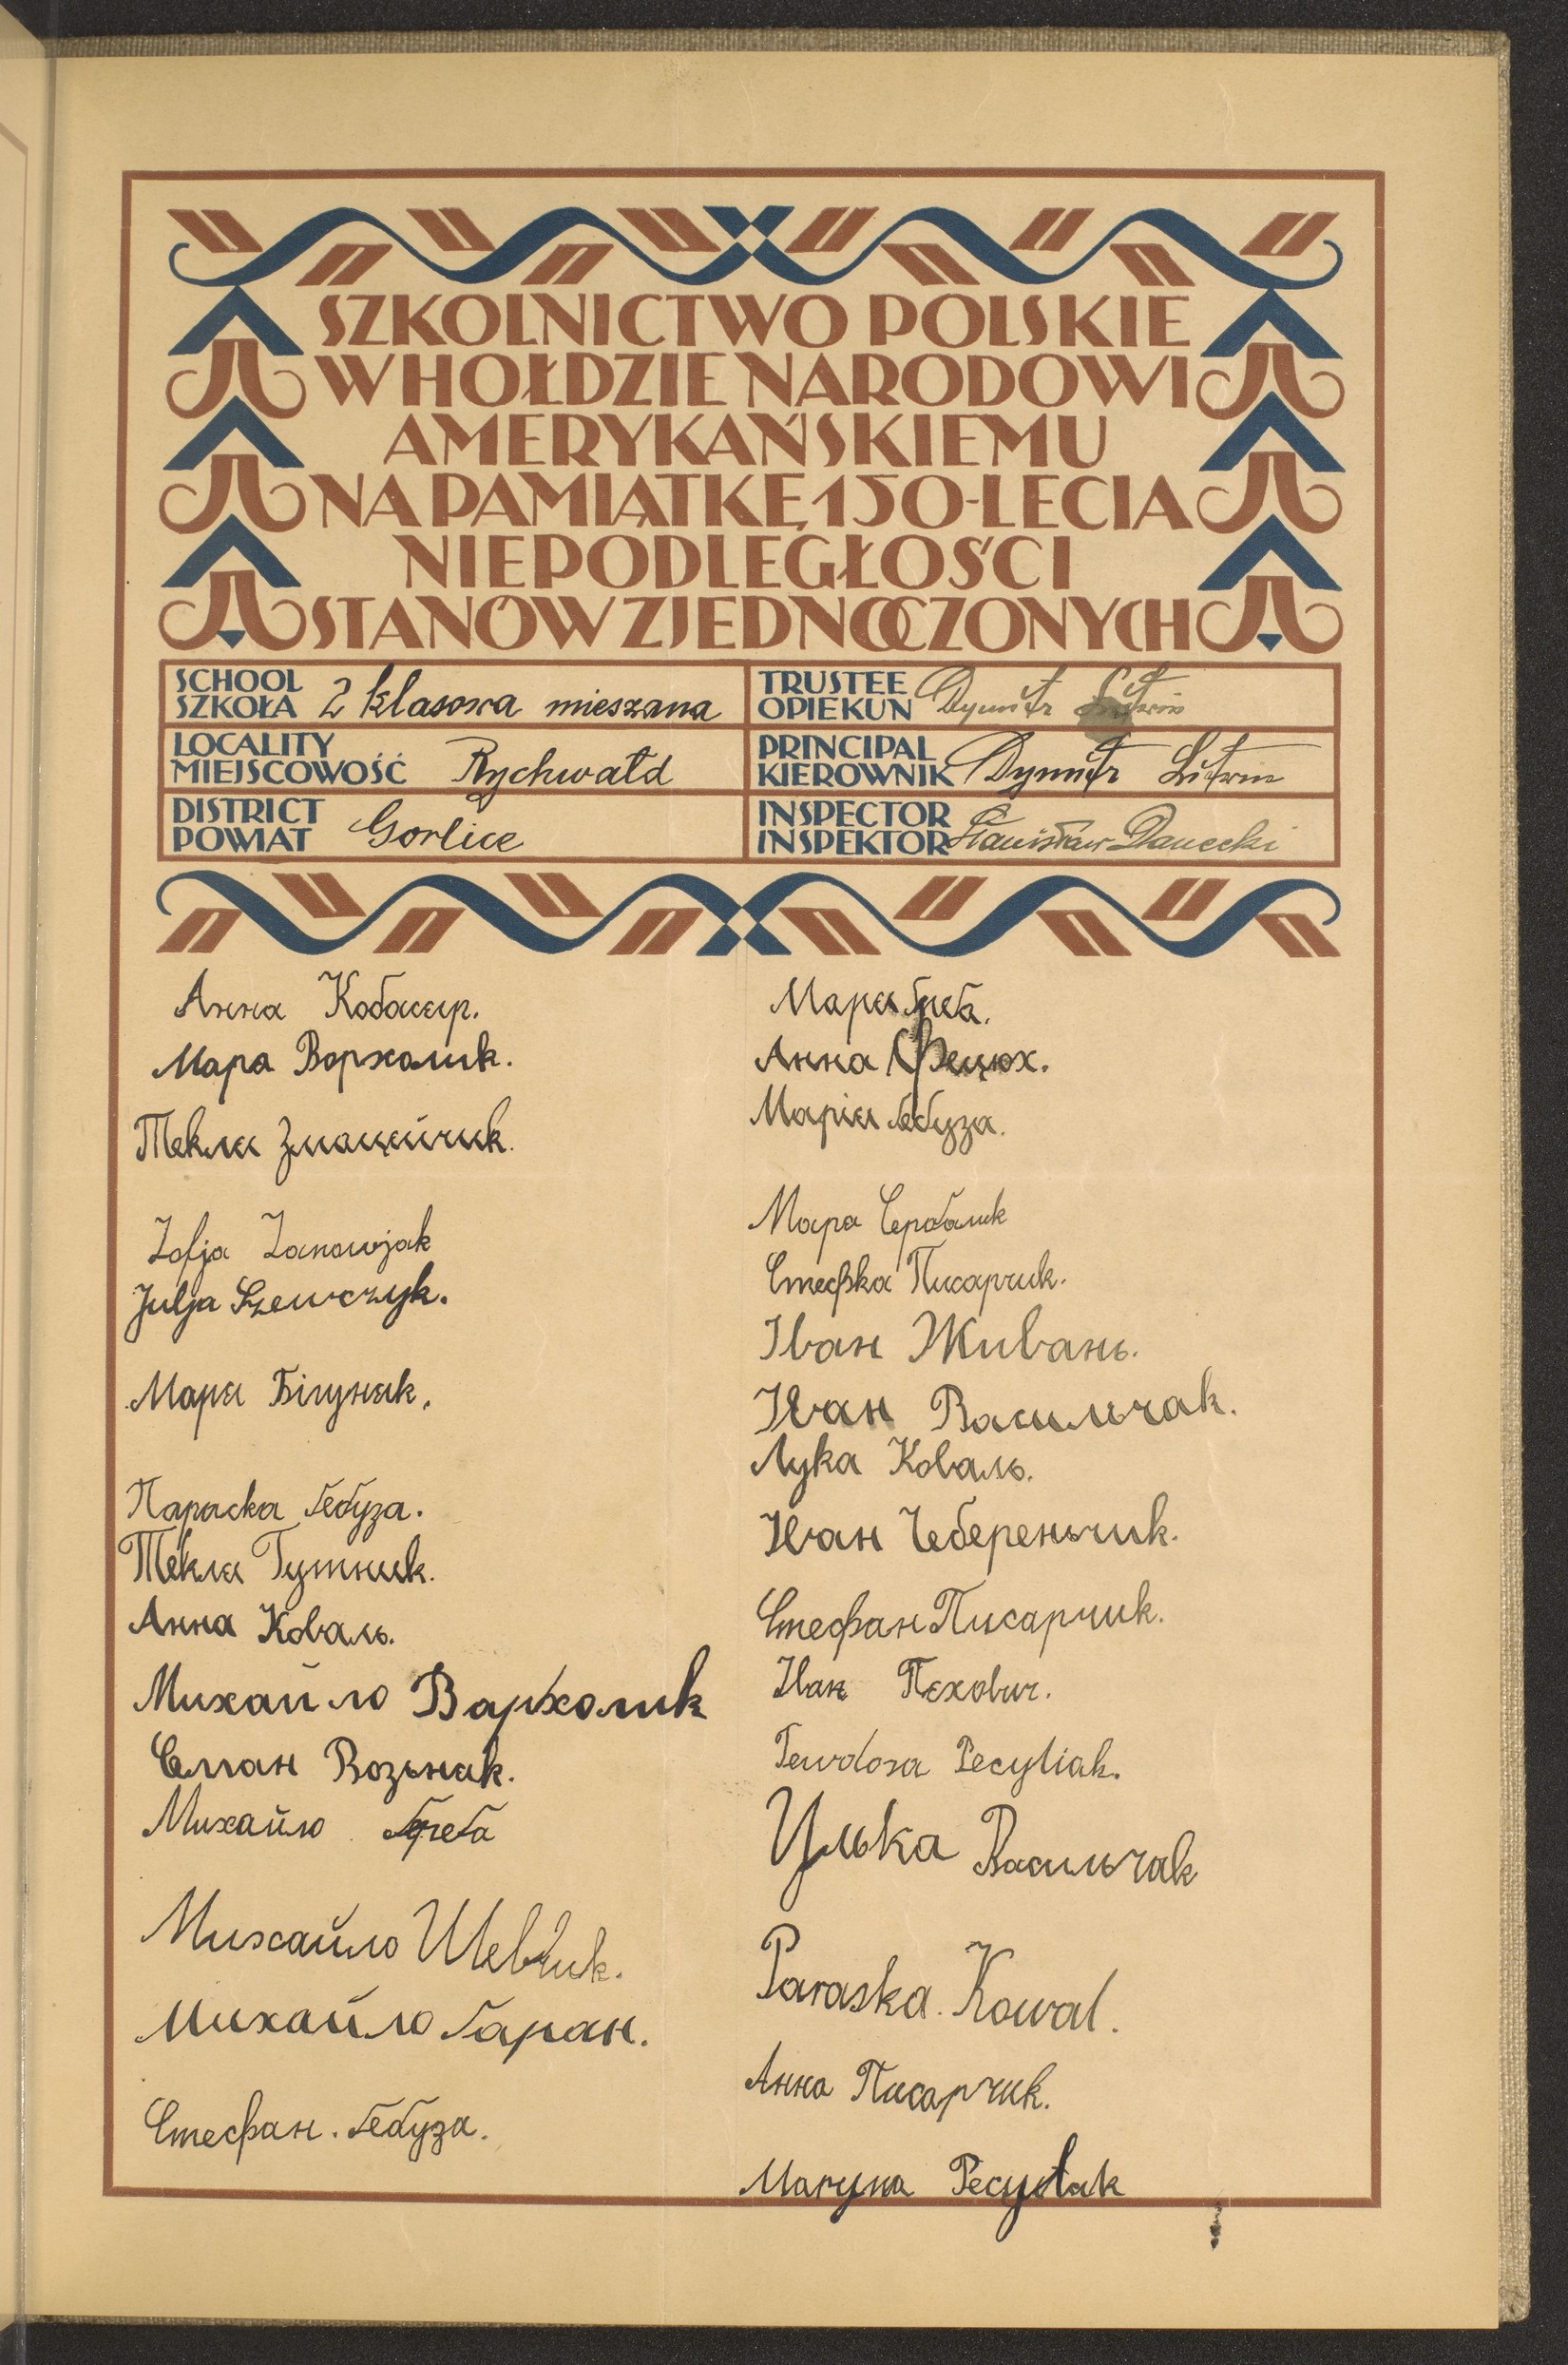 SZKOLNICTWO POLSKIE
W HOŁDZIE NARODOWI
AMERYKAŃSKIEMU
NA PAMIĄTKĘ 150-LECIA
NIEPODLEGŁOŚCI
STANÓW ZJEDNOCZONYCH
SCHOOL
SZKOŁA 2 klasowa mieszana
TRUSTEE
OPIEKUN Dymitr Litwin
LOCALITY
MIEJSCOWOŚĆ Rychwałd
PRINCIPAL
KIEROWNIK Dymitr Litwin
DISTRICT
POWIAT Gorlice
INSPECTOR
INSPEKTOR Stanisław Danecki
Анна
Мара Ворхолик.
Текля
Zofja Zanowjak
Julja Szewczyk.
Маря Бігуняк.
Параска Ґебуза.
Текля Гутник.
Анна Коваль.
Михайло Вархолик
Семан Возьняк.
Михайло Ґреба
Михайло Шевчик.
Михайло Ґаран.
Стефан. Ґебуза.
Маря
Анна Фецюх.
Марія Ґебуза.
Мара
Стефка Писарчик.
Іван Живань.
Іван Васильчак.
Лука Коваль.
Іван Чеберенчик.
Стефан Писарчик.
Іван Пехович.
Tewdora Pecyliak.
Улька Васильчак
Paraska. Kowal.
Анна Писарчик.
Maryna Pecylak